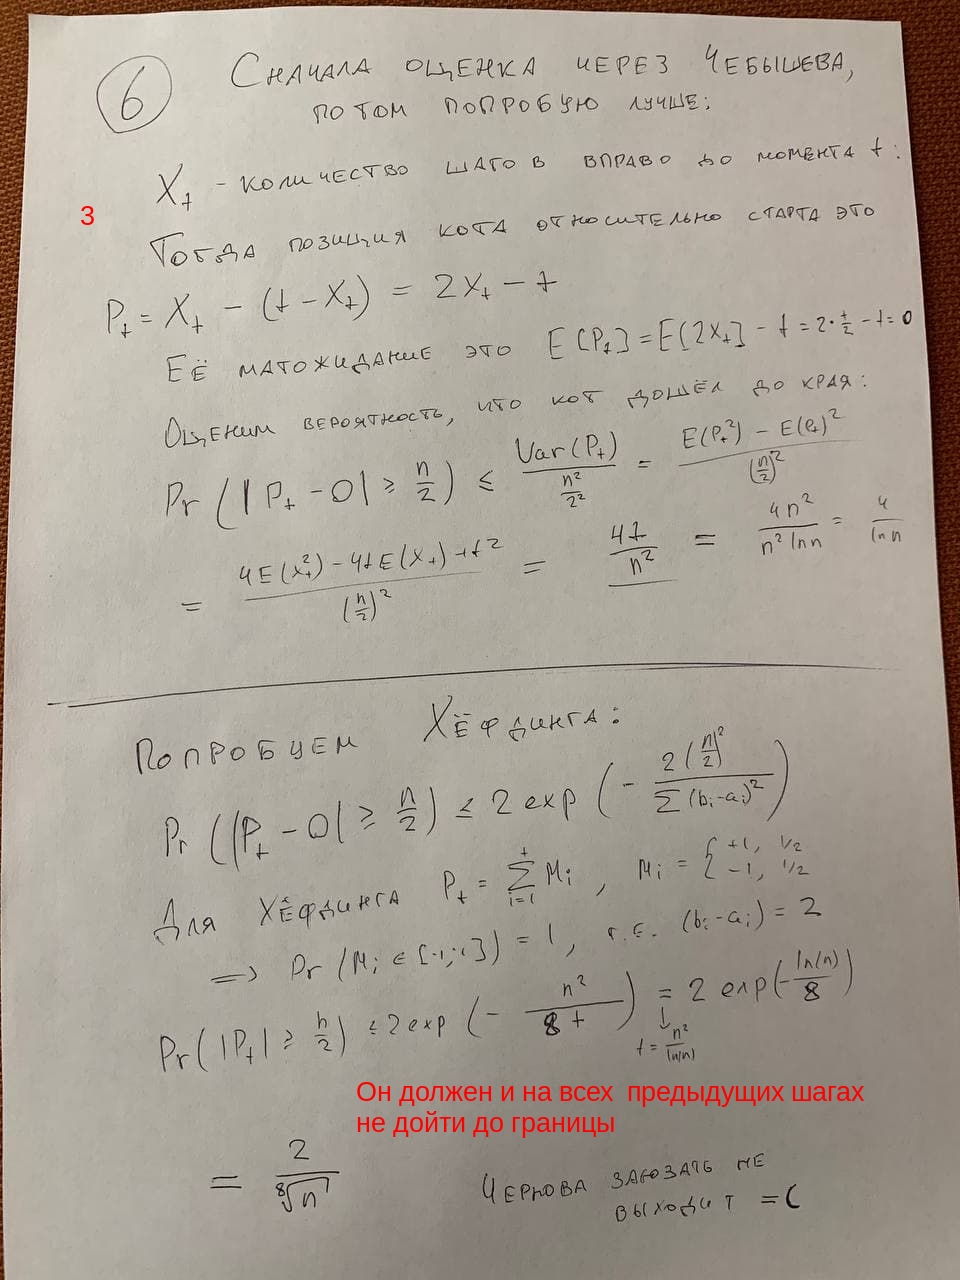 6 Сначала оценка через Чебышева,
потом попробую лучше:
X_t - количество шагов вправо до момента t:
3
Тогда позиция кота относительно старта это
P_t = X_t - (t - X_t) = 2X_t - t
Её матожидание это E[P_t] = E[2X_t] - t = 2·t/2 - t = 0
Оценим вероятность, что кот дошёл до края:
Pr(|P_t - 0| ≥ n/2) ≤ Var(P_t)/(n²/2²) = (E(P_t²) - E(P_t)²)/(n/2)²
= (4E(X_t²) - 4tE(X_t) + t²)/(n/2)² = 4t/n² = 4n²/(n² ln n) = 4/ln n
Попробуем Хёфдинга:
Pr(|P_t - 0| ≥ n/2) ≤ 2 exp(- 2(n/2)²/Σ(b_i - a_i)²)
Для Хёфдинга P_t = Σ_{i=1}^{t} M_i, M_i = { +1, 1/2 -1, 1/2
=> Pr(M_i ∈ [-1; 1]) = 1, т.е. (b_i - a_i) = 2
Pr(|P_t| ≥ n/2) ≤ 2 exp(- n²/8t) = 2 exp(- ln(n)/8)
↓
t = n²/ln(n)
Он должен и на всех предыдущих шагах
не дойти до границы
= 2/⁸√n
Чернова заюзать не
выходит =(